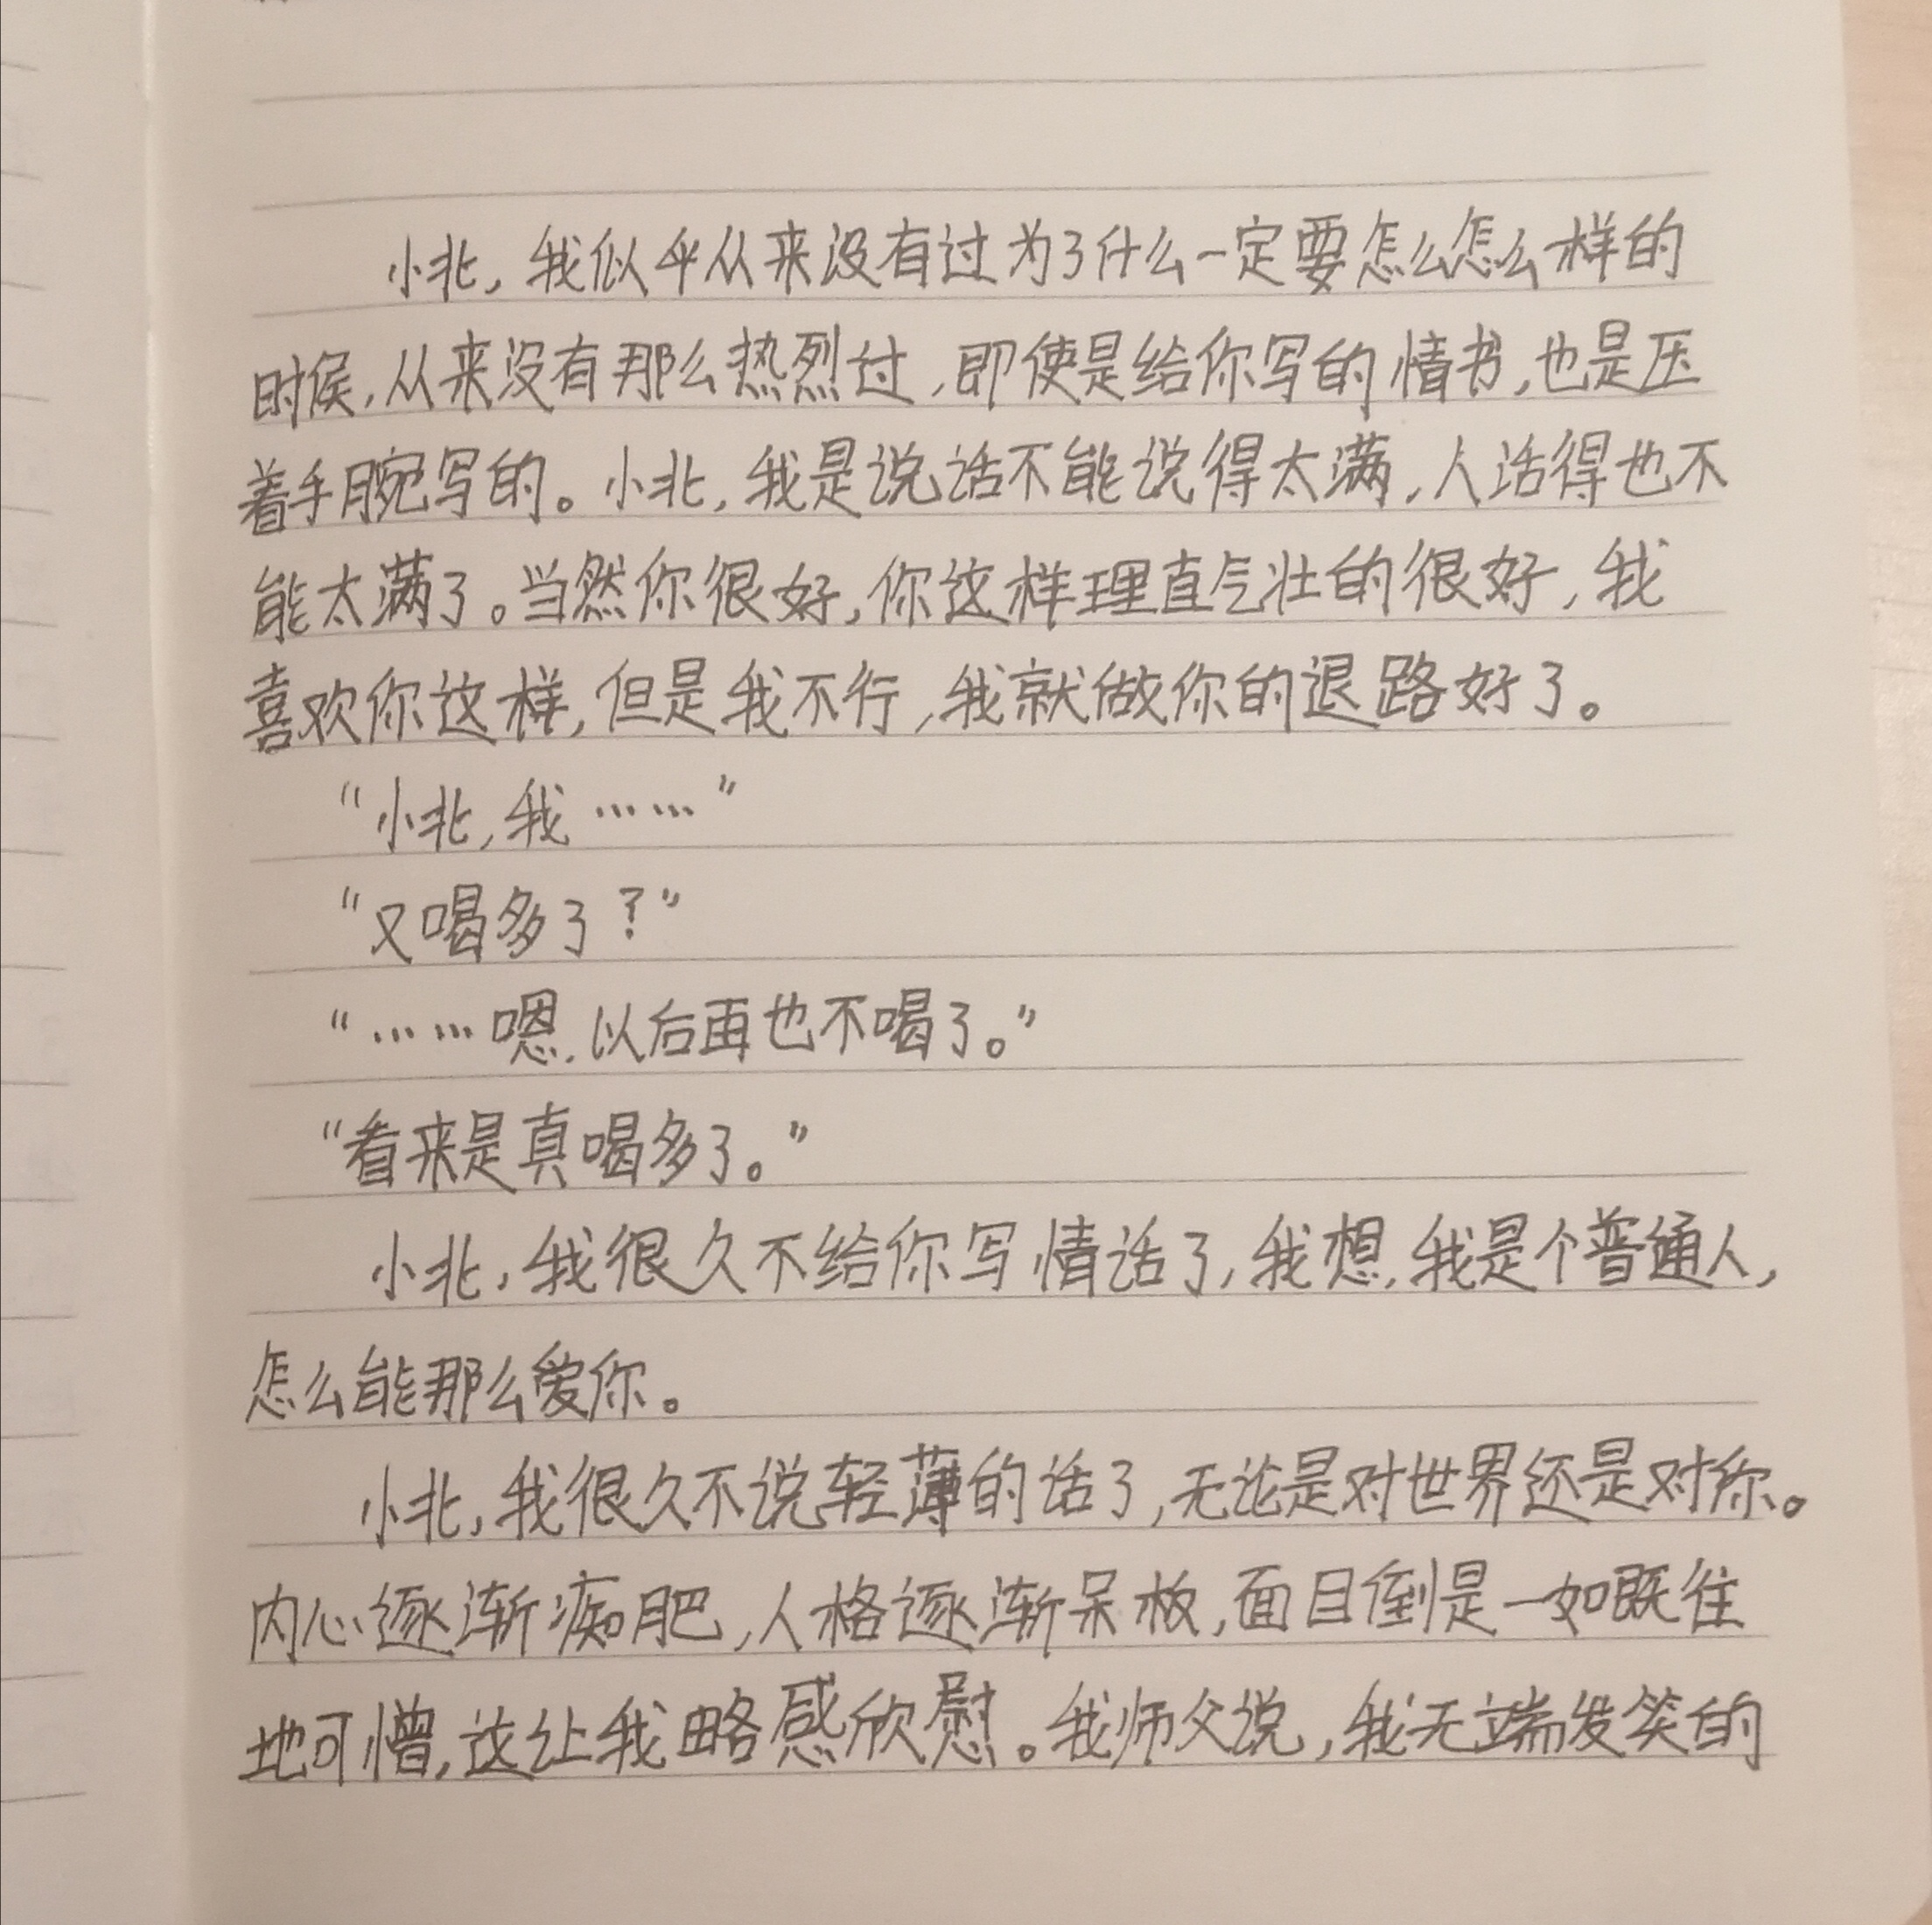 小北，我似乎从来没有过为了什么一定要怎么怎么样的
时候，从来没有那么热烈过，即使是给你写的情书，也是压
着手腕写的。小北，我是说话不能说得太满，人活得也不
能太满了。当然你很好，你这样理直气壮的很好，我
喜欢你这样，但是我不行，我就做你的退路好了。
“小北，我……”
“又喝多了？”
“……嗯，以后再也不喝了。”
“看来是真喝多了。”
小北，我很久不给你写情话了，我想，我是个普通人，
怎么能那么爱你。
小北，我很久不说轻薄的话了，无论是对世界还是对你。
内心逐渐痴肥，人格逐渐呆板，面目倒是一如既往
地可憎，这让我略感欣慰。我师父说，我无端发笑的